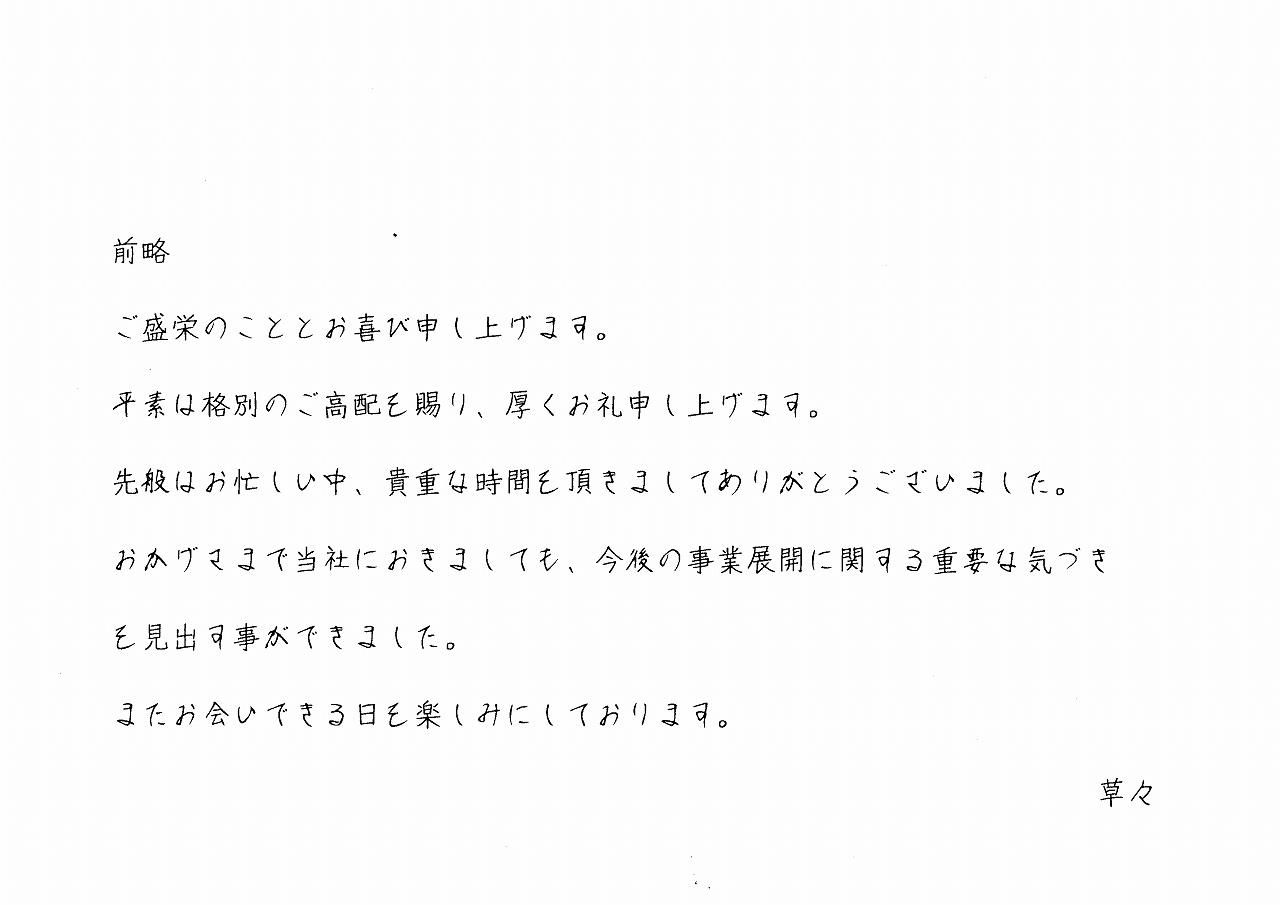 前略
ご盛栄のこととお喜び申し上げます。
平素は格別のご高配を賜り、厚くお礼申し上げます。
先般はお忙しい中、貴重な時間を頂きましてありがとうございました。
おかげさまで当社におきましても、今後の事業展開に関する重要な気づき
を見出す事ができました。
またお会いできる日を楽しみにしております。
草々